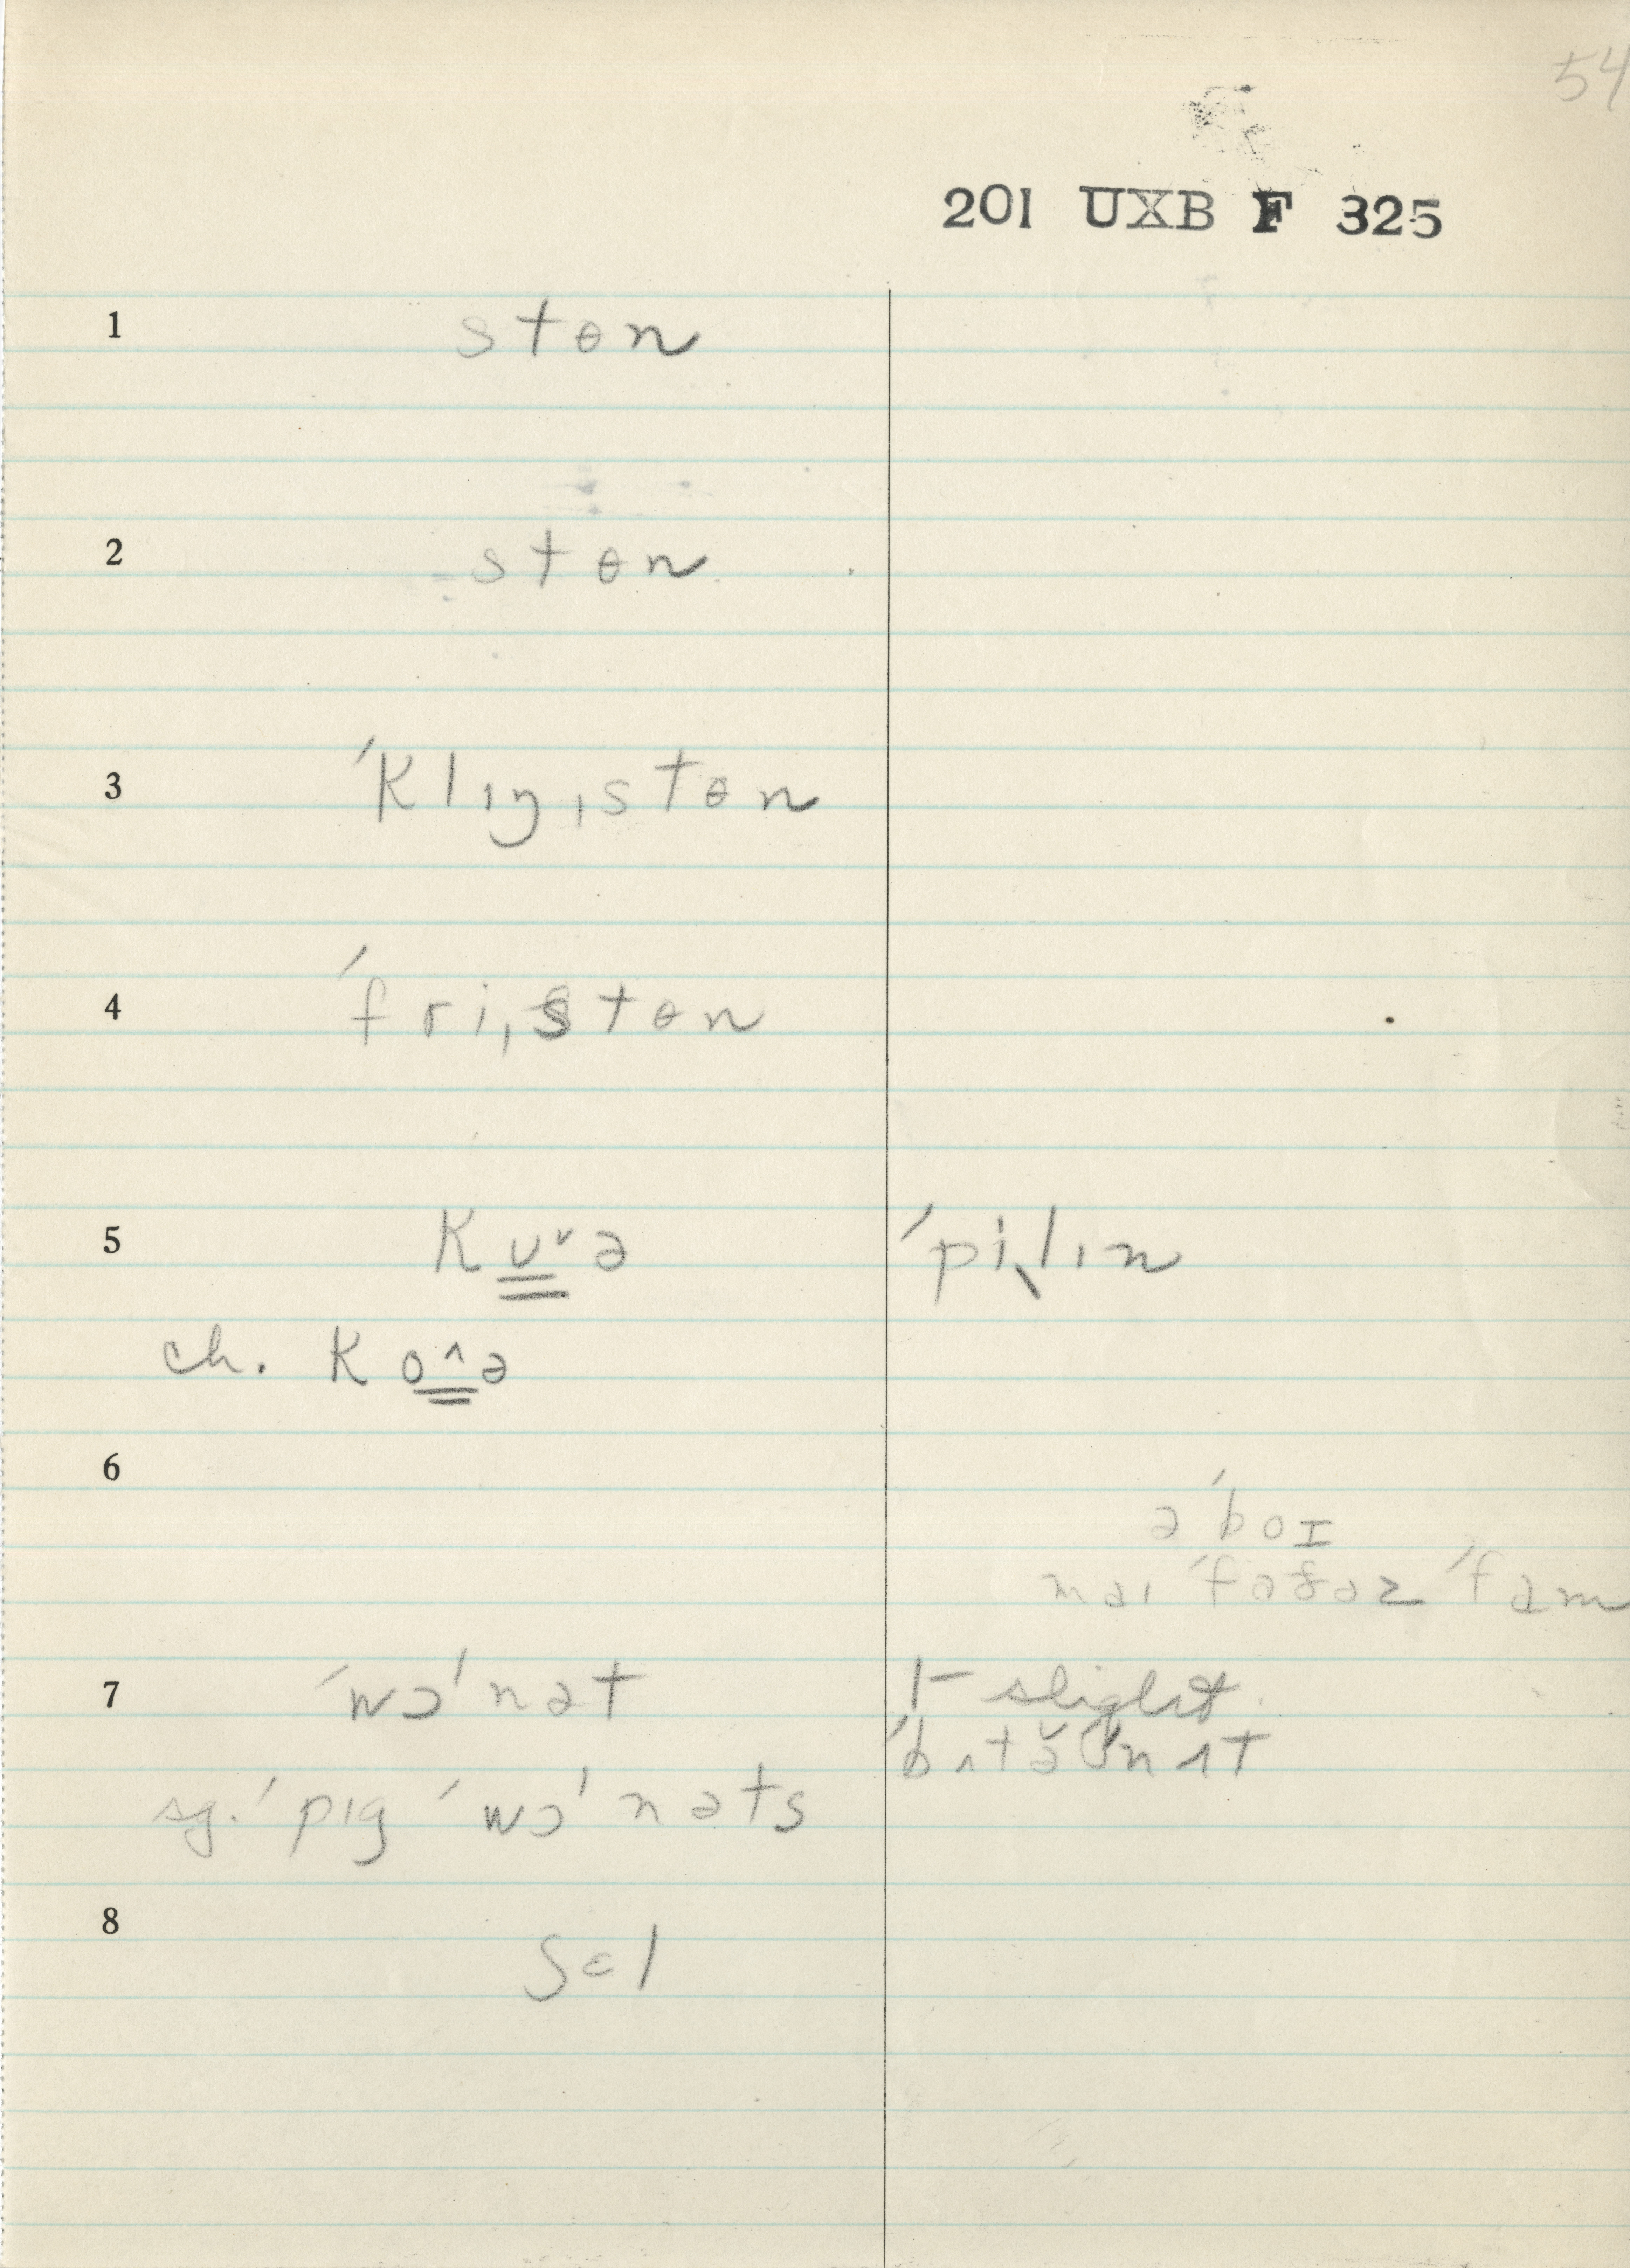 54
201 UXB F 325
1 stɵn
2 stɵn
3 ˈklɪŋˌstɵn
4 ˈfriˌstɵn
5 kʊ˅ə ˈpiˌlɪn
ch. ko^ə
6
ə ˈboɪ
maɪ ˈfɑðəz ˈfam
7 ˈwɔˈnət 1- slight
ˈbʌtəˈnʌt
sg. ˈpɪg ˈwɔˈnəts
8 ʃɛl